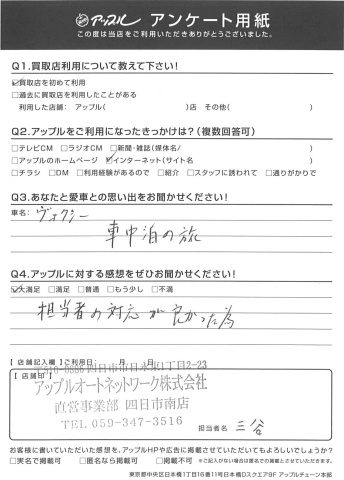 アップル アンケート用紙
この度は当店をご利用いただきありがとうございました。
Q1.買取店利用について教えて下さい!
☑買取店を初めて利用
□過去に買取店を利用したことがある
利用した店舗： アップル( )店 その他( )
Q2.アップルをご利用になったきっかけは?(複数回答可)
□テレビCM □ラジオCM □新聞・雑誌(媒体名/ )
□アップルのホームページ ☑インターネット(サイト名 )
□チラシ □DM □利用経験があるので □紹介 □スタッフに誘われて □通りがかりで
Q3.あなたと愛車との思い出をお聞かせください!
車名： ヴォクシー
車中泊の旅
Q4.アップルに対する感想をぜひお聞かせください!
☑大満足 □満足 □普通 □もう少し □不満
担当者の対応が良かった為
【店舗記入欄】ご利用日： 月 日
【店舗印】
〒510-0886 四日市市日永東1丁目2-23
アップルオートネットワーク株式会社
直営事業部 四日市南店
TEL 059-347-3516
担当者名 三谷
お客様に書いていただいた感想を、アップルHPや広告に掲載させていただいてもよろしいでしょうか?
□実名で掲載可 □匿名なら掲載可 □掲載不可 ※ご記入がない場合は匿名での掲載とさせていただきます。
東京都中央区日本橋1丁目16番11号日本橋Dスクエア9F アップルチェーン本部